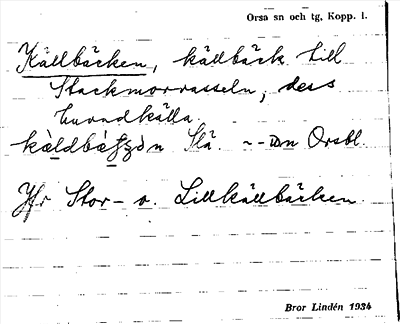 Orsa sn och tg, Kopp. l.
Källbäcken, källbäck till
Stackmorrasseln, dess
huvudkälla.
Slä. ~-ən Orsbl.
Jfr Stor- o. Lillkällbäcken.
Bror Lindén 1934